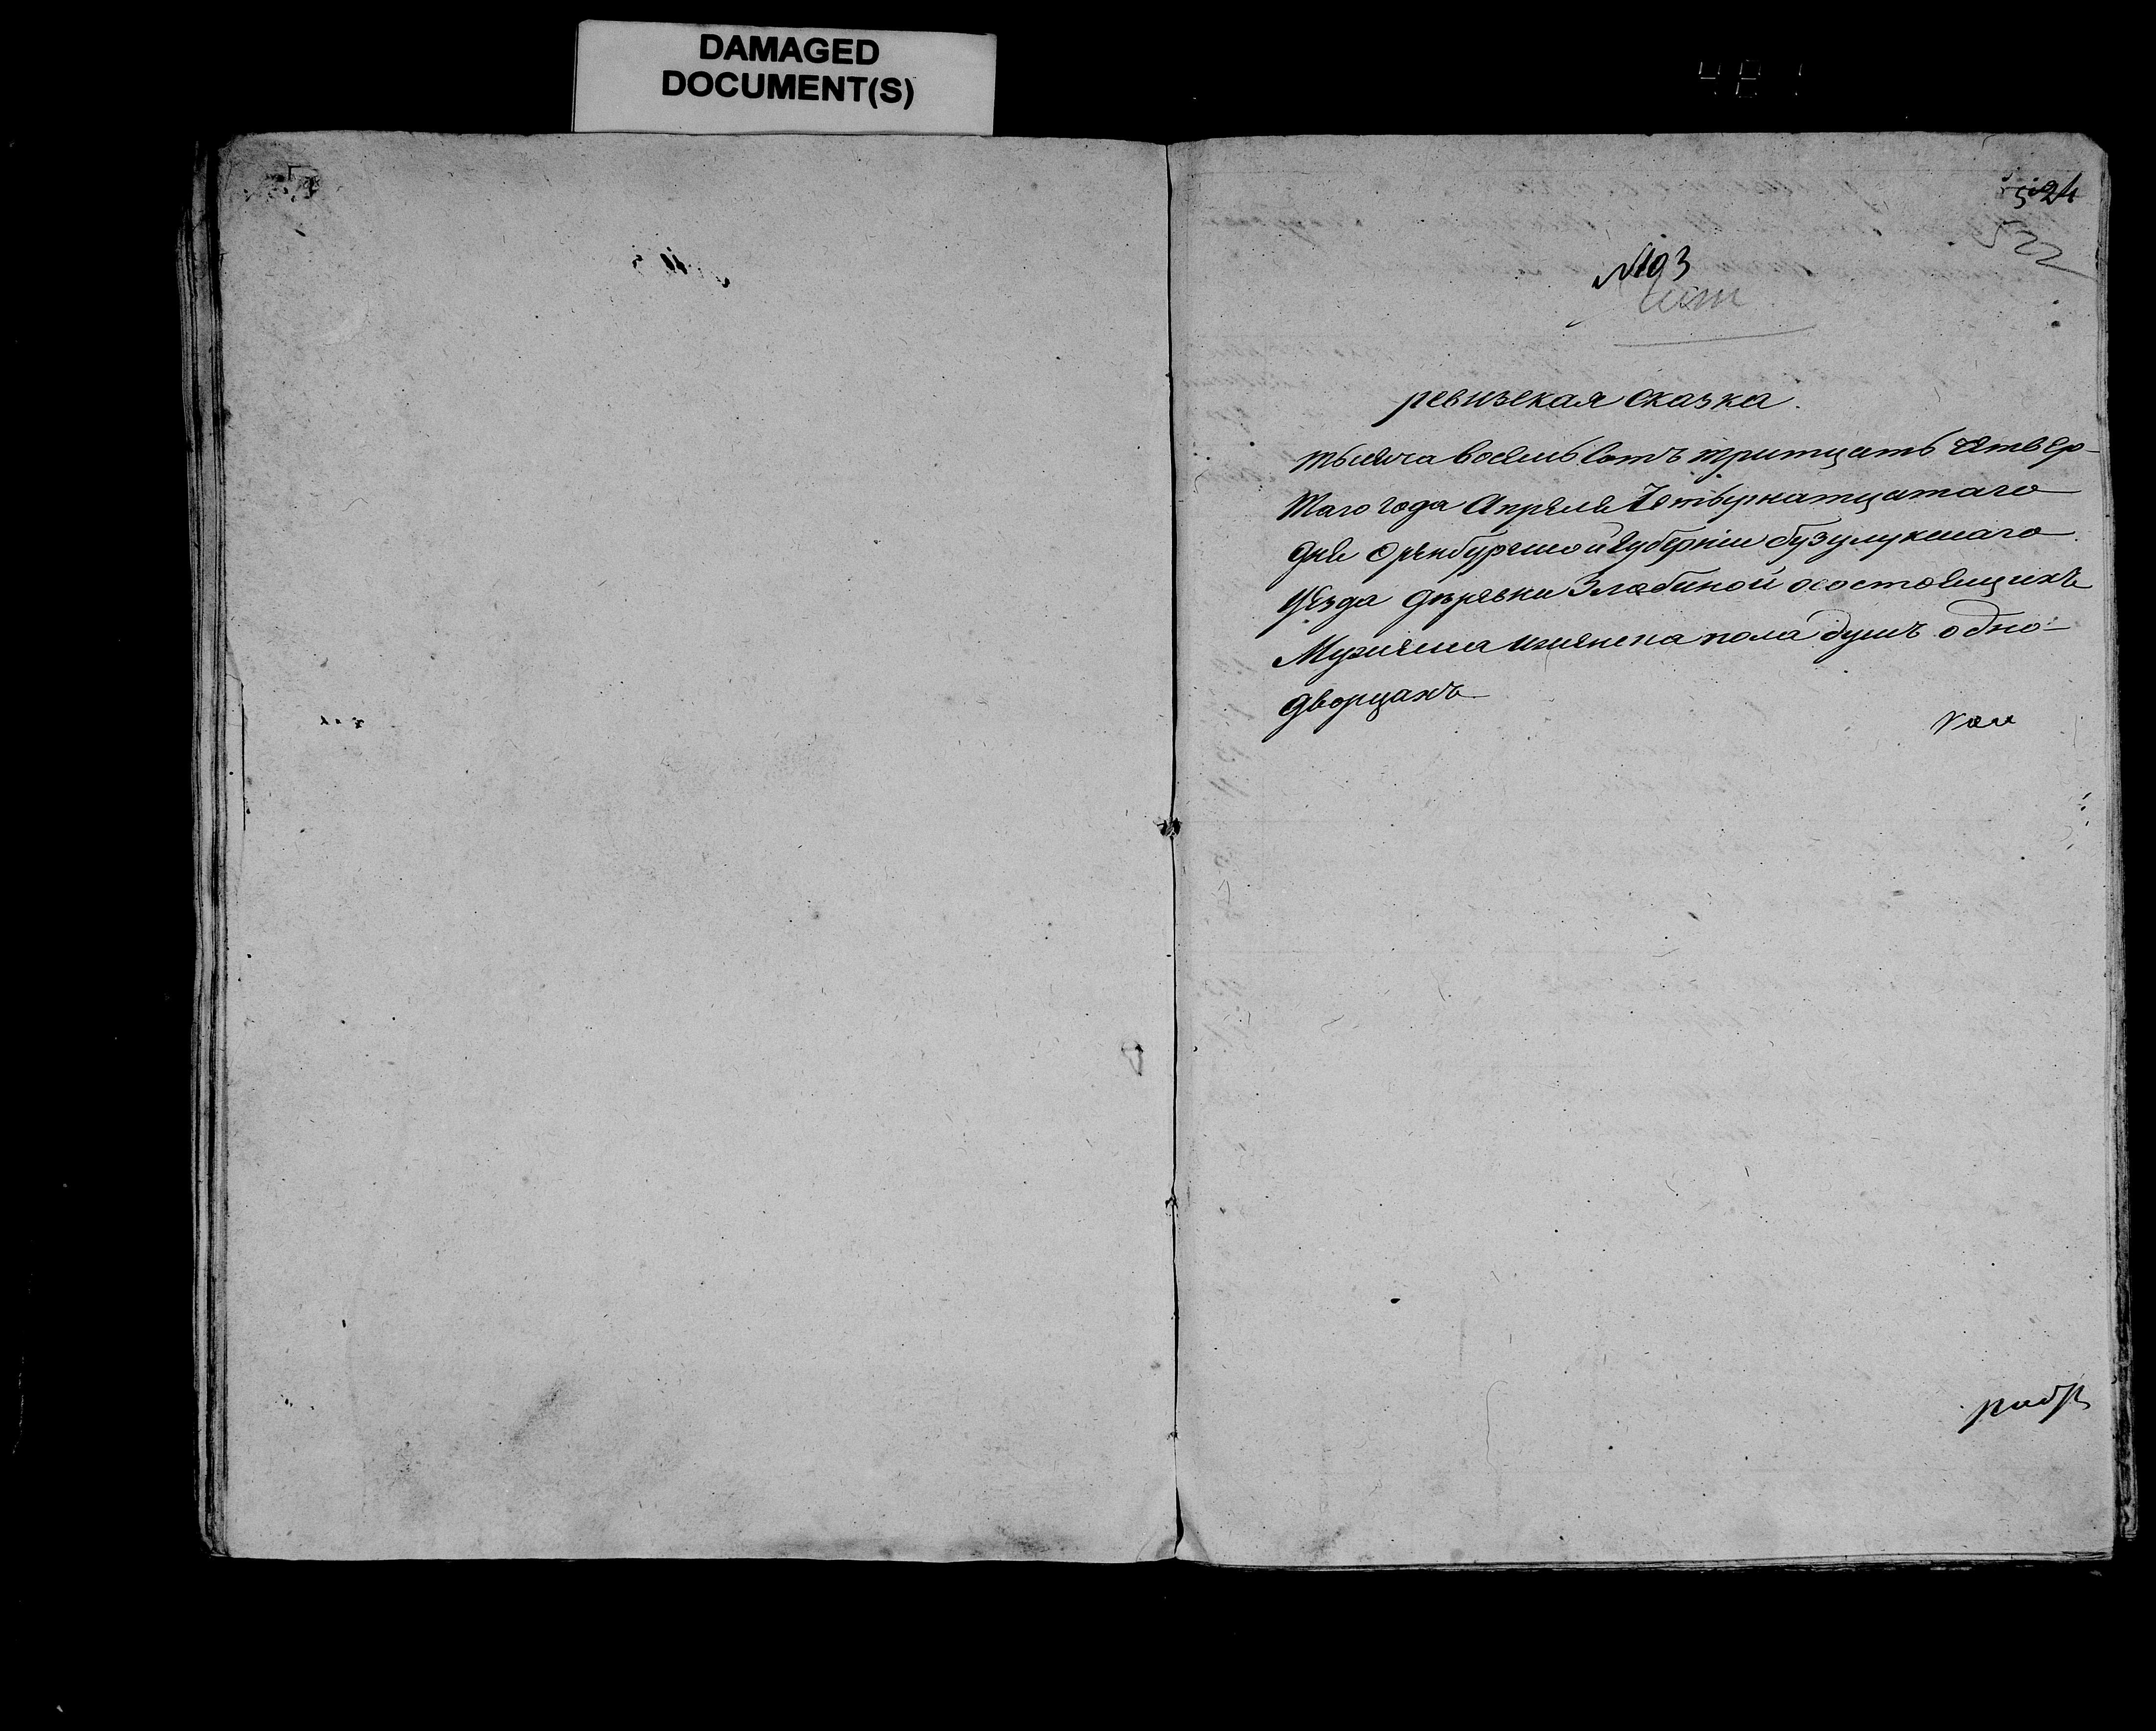 DAMAGED
DOCUMENT(S)
524
522
№193
ревизская сказка.
тысяча восемь сотъ тритцать четвер-
таго года Апреля Четвернатцатаго
дня Оренбургской губернии бузулукскаго
уезда деревни Злобиной осостоящихъ
Мужеска иженска пола душъ одно-
дворцахъ